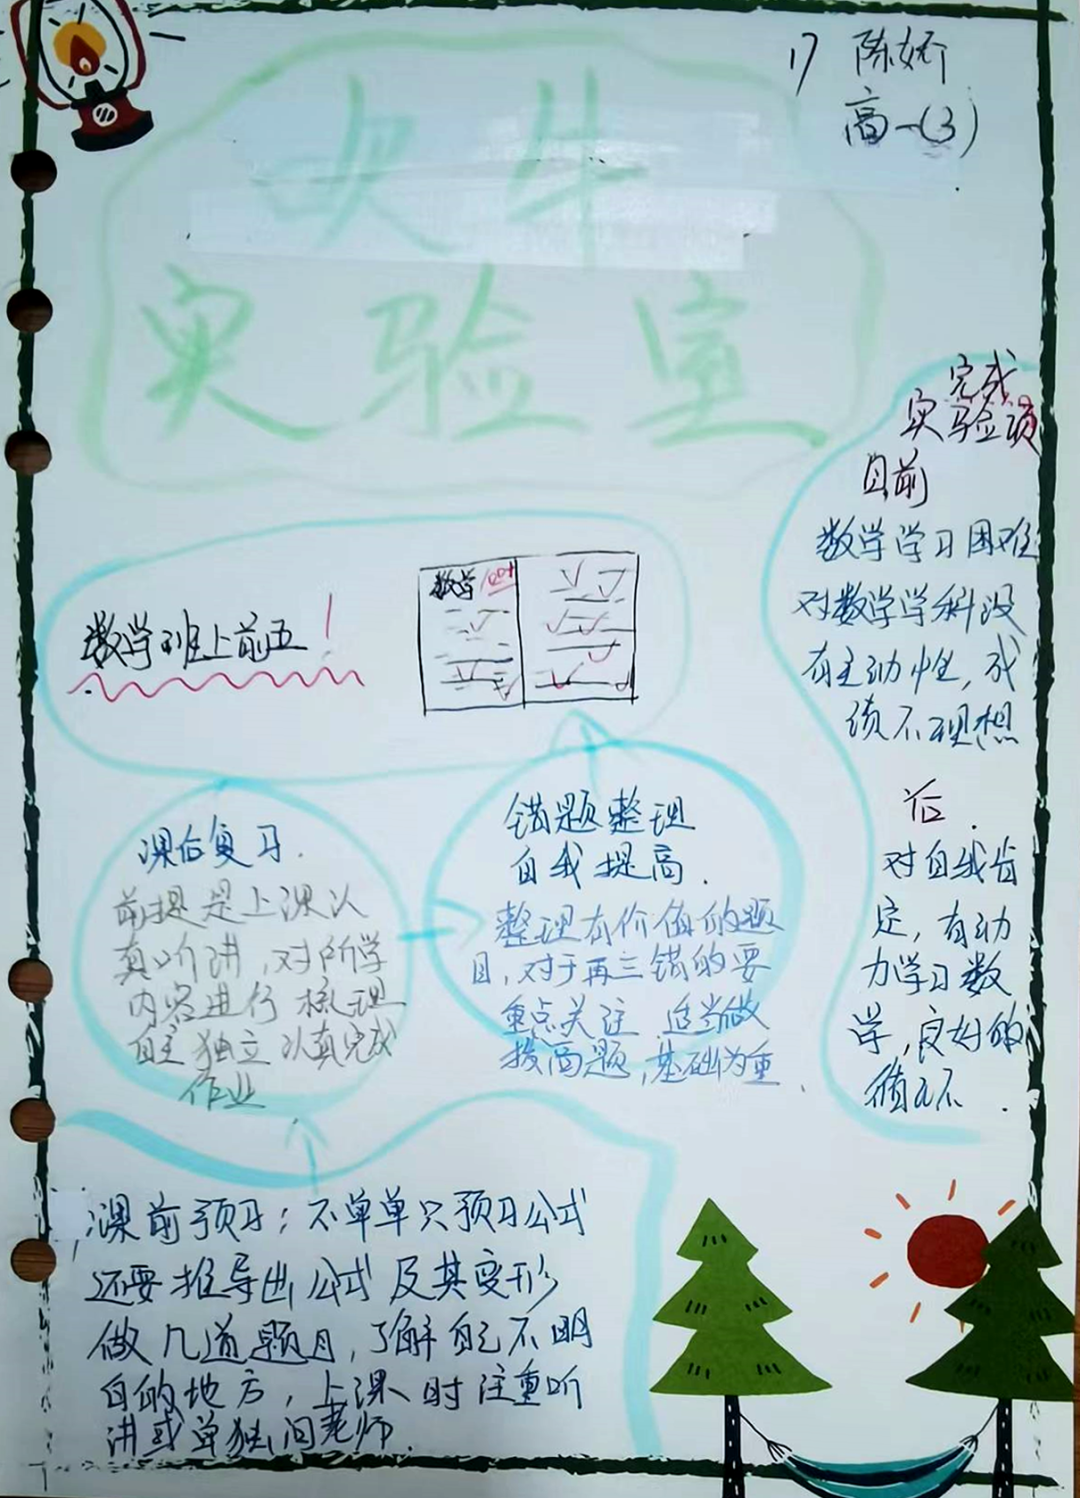 17 陈妍
高一(3)
吹牛
实验室
完成
实验项
目前
数学学习困难
对数学学科没
有主动性,成
绩不理想
后.
对自我肯
定,有动
力学习数
学,良好的
循环.
数学班上前五!
数学 100+
课后复习.
前提是上课认
真听讲,对所学
内容进行梳理
自主独立认真完成
作业
错题整理
自我提高.
整理有价值的题
目,对于再三错的要
重点关注 适当做
拔高题,基础为重.
课前预习:不单单只预习公式
还要推导出公式及其变形
做几道题目,了解自己不明
白的地方,上课时注重听
讲或单独问老师.